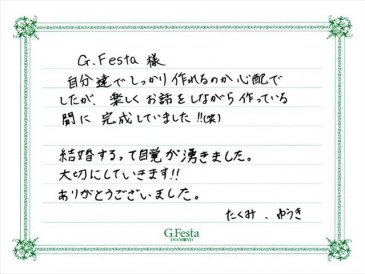 G.Festa 様
自分達でしっかり作れるのか心配で
したが、楽しくお話をしながら作っている
間に完成していました!!(笑)
結婚するって自覚が湧きました。
大切にしていきます!!
ありがとうございました。
たくみ、ゆうき
G.Festa
DIAMOND